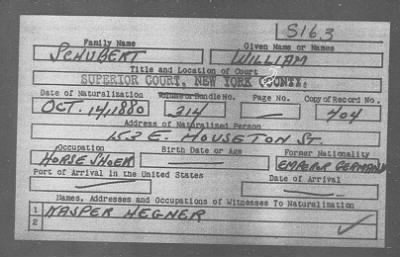 S16.3
Family Name Given Name or Names
SCHUBERT WILLIAM
Title and Location of Court
SUPERIOR COURT, NEW YORK COUNTY.
Date of Naturalization Volume or Bundle No. Page No. Copy of Record No.
OCT. 14, 1880 214 — 404
Address of Naturalized Person
153 E. HOUSETON ST.
Occupation Birth Date or Age Former Nationality
HORSE SHOER — EMPEROR GERMANY
Port of Arrival in the United States Date of Arrival
— —
Names, Addresses and Occupations of Witnesses To Naturalization
1 KASPER HEGNER
2